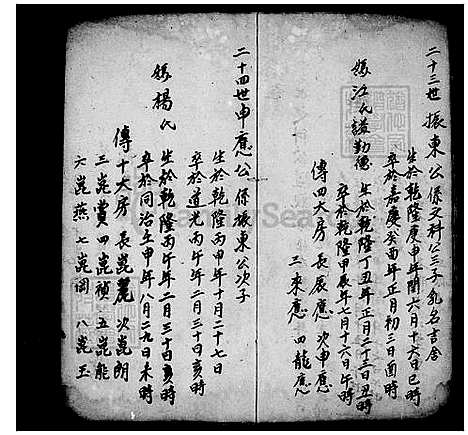 二十三世 振東公係文科公三子 乳名吉舍
生於乾隆庚申年閏六月十六日巳時
卒於嘉慶癸酉年正月初三日酉時
媲江氏諡勤德 生於乾隆丁丑年正月二十二日丑時
卒於乾隆甲辰年七月十六日午時
傳四大房 長展應 次申應
三來應 四龍應
二十四世申應公係振東公次子
生於乾隆丙申年十月二十七日
卒於道光丙午年二月三十日亥時
媲楊氏 生於乾隆丙午年二月三十日亥時
卒於同治壬申年八月二九日未時
傳十大房 長崑麗 次崑朗
三崑賞 四崑禎 五崑能
六崑燕 七崑岡 八崑玉
FamilySearch